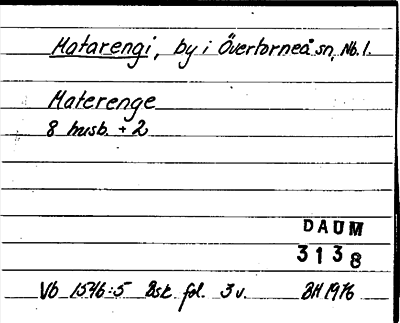 Matarengi, by i Övertorneå sn, Nb. l.
Materenge
8 husb. + 2
DAUM
3138
Vb 1546:5 Bsk fol. 3 v. BH 1976